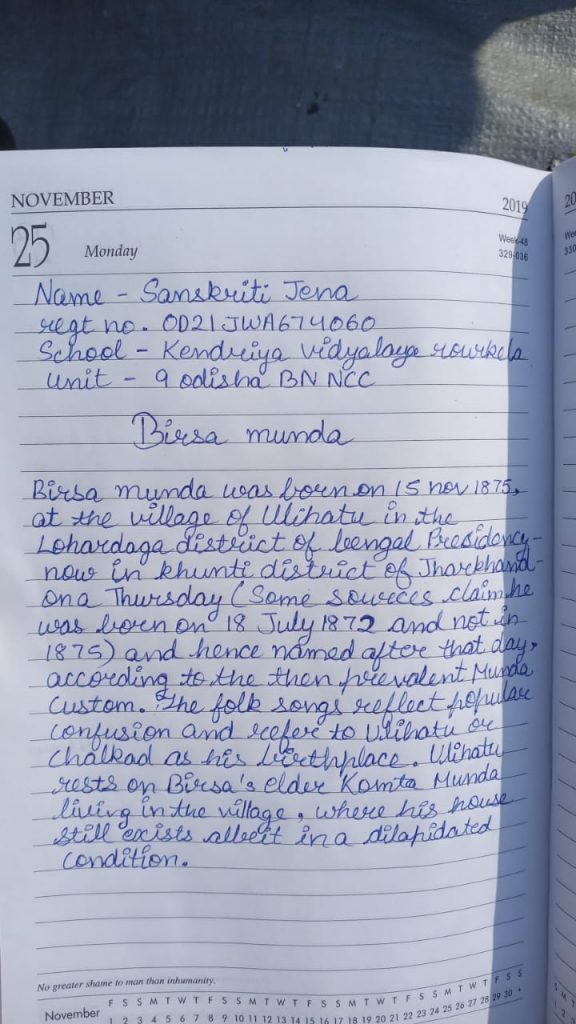 NOVEMBER 2019
25 Monday
Week-48
329-036
Name - Sanskriti Jena
regt no. OD21JWA674060
School - Kendriya vidyalaya rourkela
unit - 9 odisha BN NCC
Birsa munda
Birsa munda was born on 15 nov 1875,
at the village of Ulihatu in the
Lohardaga district of bengal Presidency-
now in khunti district of Jharkhand-
on a Thursday (Some sources claim he
was born on 18 July 1872 and not in
1875) and hence named after that day,
according to the then prevalent Munda
Custom. The folk songs reflect popular
confusion and refer to Ulihatu or
Chalkad as his birthplace. Ulihatu
rests on Birsa's elder Komta Munda
living in the village, where his house
still exists albeit in a dilapidated
condition.
No greater shame to man than inhumanity.
F S S M T W T F S S M T W T F S S M T W T F S S M T W T F S S
November 1 2 3 4 5 6 7 8 9 10 11 12 13 14 15 16 17 18 19 20 21 22 23 24 25 26 27 28 29 30 •